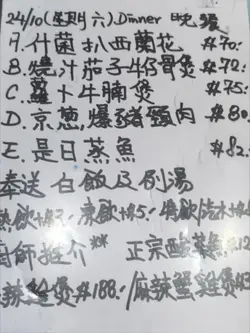 24/10(星期六)Dinner 晚餐
A.什菌扒西蘭花 #70:
B.燒汁茄子牛仔骨煲 #72:
C.蘿卜牛腩煲 #75:
D.京葱爆豬頸肉 #80:
E.是日蒸魚 #82:
奉送 白飯及例湯
熱飲+#3: 凍飲+#5:
廚師推介** 正宗酸菜魚#12
辣雞煲#188:/麻辣蟹雞煲#3